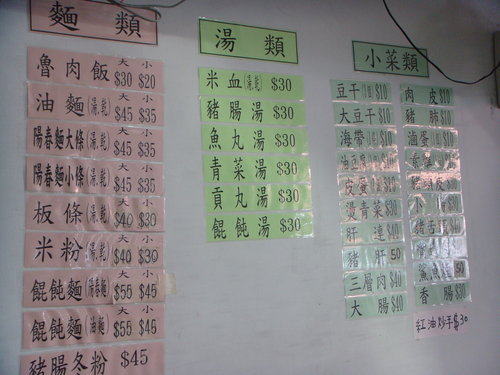 麵 類
大 小
魯肉飯 $30 $20
大 小
油麵(湯,乾) $45 $35
大 小
陽春麵大條(湯,乾) $45 $35
大 小
陽春麵小條(湯,乾) $45 $35
大 小
板條(湯,乾) $40 $30
大 小
米粉(湯,乾) $40 $30
大 小
餛飩麵(陽春麵) $55 $45
大 小
餛飩麵(油麵) $55 $45
豬腸冬粉 $45
湯 類
米血(湯,乾) $30
豬腸湯 $30
魚丸湯 $30
青菜湯 $30
貢丸湯 $30
餛飩湯 $30
小菜類
豆干 $10
大豆干 $10
海帶 $10
油豆腐 $10
皮蛋 $10
燙青菜 $30
肝連 $40
豬肝 50
三層肉 $40
大腸 $40
肉皮 $10
豬肺 $10
滷蛋 $10
豬頭皮 $30
豬舌 $40
50
香腸 $30
紅油炒手 $30